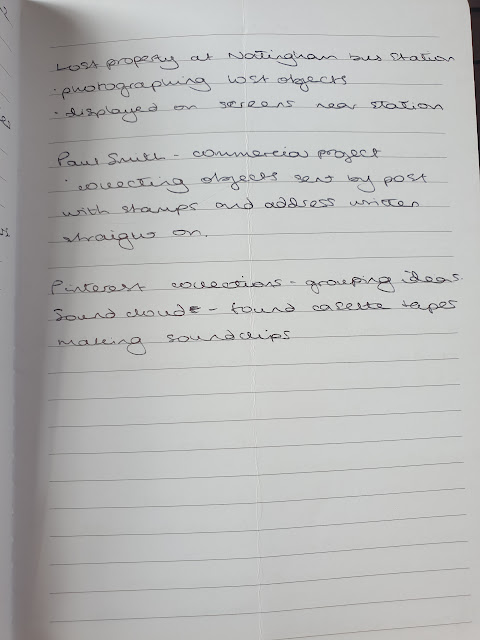 Lost property at Nottingham bus station
· photographing lost objects
· displayed on screens near station
Paul Smith - commercial project
· collecting objects sent by post
with stamps and address written
straight on.
Pinterest collections - grouping ideas.
Sound cloud - found casette tapes
making soundclips